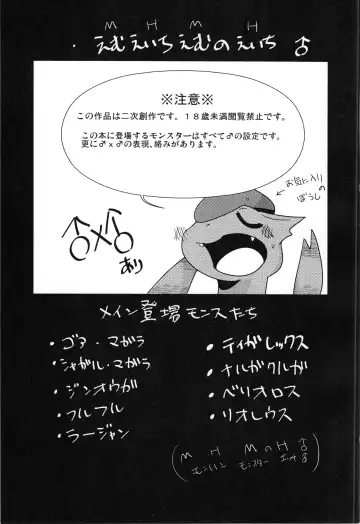 M H M H
・えむえいちえむのえいち ♂
※注意※
この作品は二次創作です。１８歳未満閲覧禁止です。
この本に登場するモンスターはすべて♂の設定です。
更に♂×♂の表現、絡みがあります。
お気に入りの
ぼうし
♂×♂
あり
メイン登場モンスたち
・ゴア・マガラ
・シャガル・マガラ
・ジンオウガ
・フルフル
・ラージャン
・ティガレックス
・ナルガクルガ
・ベリオロス
・リオレウス
(M H MのH ♂
モンハン モンスター エッチ ♂)